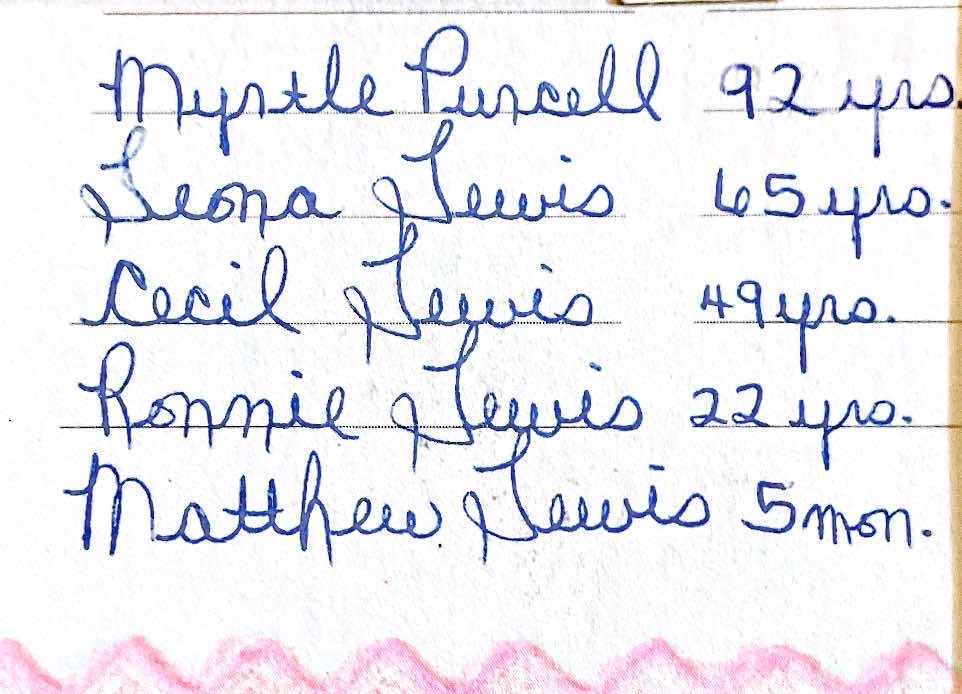 Myrtle Purcell 92 yrs.
Leona Lewis 65 yrs.
Cecil Lewis 49 yrs.
Ronnie Lewis 22 yrs.
Matthew Lewis 5 mon.